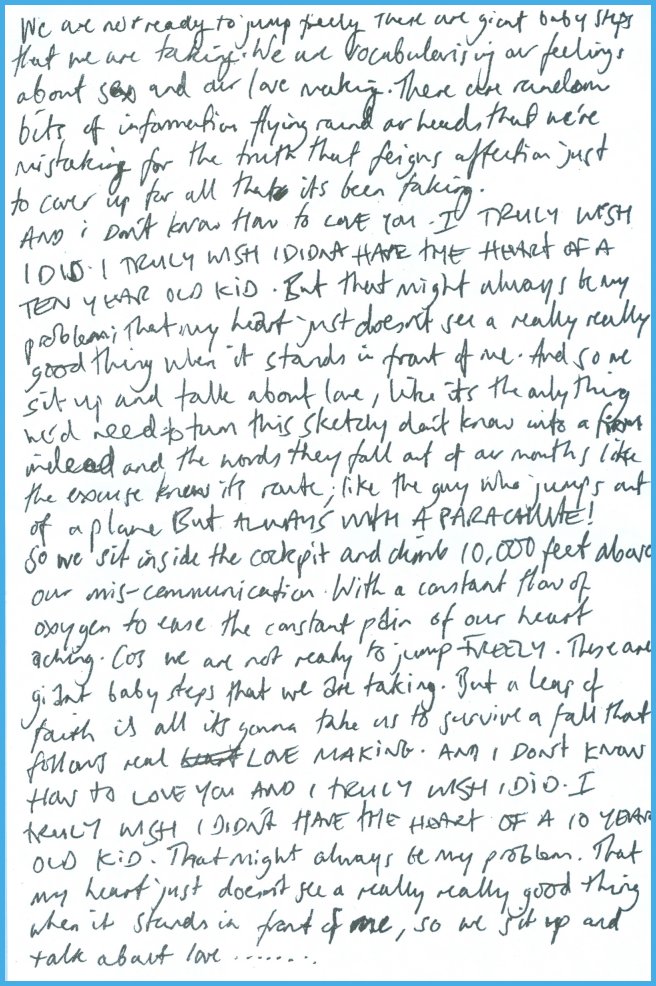 We are not ready to jump freely There are giant baby steps
that we are taking. We are vocabularising our feelings
about sex and our love making. There are random
bits of information flying round our heads that we're
mistaking for the truth that feigns affection just
to cover up for all that its been faking.
AND i DON't KNOW HOW to LOVE YOU. I TRULY WISH
I DID. I TRULY WISH I DIDN'T HAVE THE HEART OF A
TEN YEAR OLD KID. But that might always be my
problem; That my heart just doesn't see a really really
good thing when it stands in front of me. And so we
sit up and talk about love, like its the only thing
we'd need to turn this sketchy don't know into a firm
indeed and the words they fall out of our mouths like
the excuse knew its route; like the guy who jumps out
of a plane But ALWAYS WITH A PARACHUTE!
So we sit inside the cockpit and climb 10,000 feet above
our mis-communication. With a constant flow of
oxygen to ease the constant pain of our heart
aching. Cos we are not ready to jump FREELY. These are
giant baby steps that we are taking. But a leap of
faith is all its gonna take us to survive a fall that
follows real LOVE MAKING. AND I DON't KNOW
HOW TO LOVE YOU AND I TRULY WISH I DID. I
TRULY WISH I DIDN'T HAVE THE HEART OF A 10 YEAR
OLD KID. That might always be my problem. That
my heart just doesn't see a really really good thing
when it stands in front of me, so we sit up and
talk about love ........